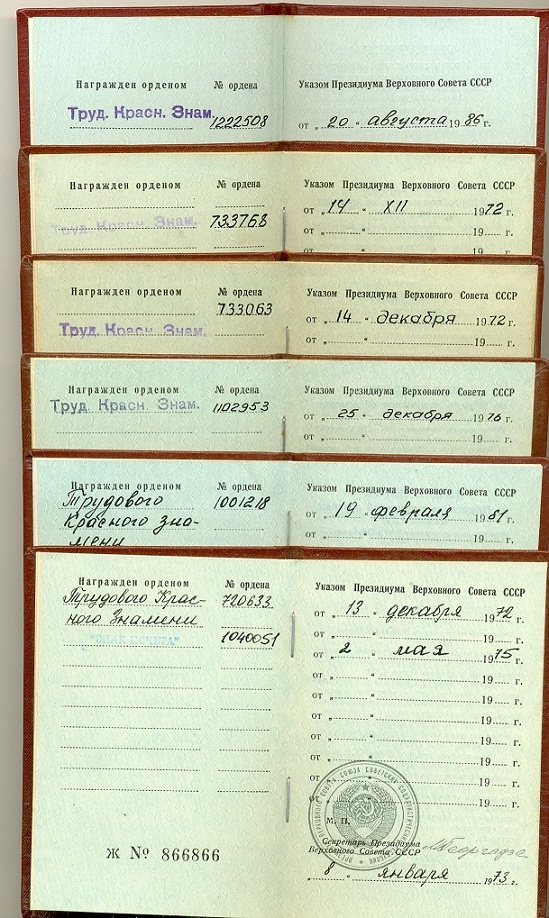 Награжден орденом № ордена Указом Президиума Верховного Совета СССР
Труд. Красн. Знам. 1222508 от „ 20 “ августа 19 86 г.
Награжден орденом № ордена Указом Президиума Верховного Совета СССР
Труд. Красн. Знам. 733768 от „ 14 “ XII 1972 г.
от „ “ 19 г.
от „ “ 19
Награжден орденом № ордена Указом Президиума Верховного Совета СССР
733063 от „ 14 “ декабря 1972 г.
Труд. Красн. Знам. от „ “ 19 г.
Награжден орденом № ордена Указом Президиума Верховного Совета СССР
Труд. Красн. Знам. 1102953 от „ 25 “ декабря 19 76 г.
от „ “ 19 г.
Награжден орденом № ордена Указом Президиума Верховного Совета СССР
Трудового 1001218 от „ 19 “ февраля 1981 г.
Красного зна- от „ “ 19 г.
мени
Награжден орденом № ордена Указом Президиума Верховного Совета СССР
Трудового Крас- 720633 от „ 13 “ декабря 1972 г.
ного Знамени от „ “ 19 г.
"ЗНАК ПОЧЕТА" 1040051 от „ 2 “ мая 1975 г.
от „ “ 19 г.
от „ “ 19 г.
от „ “ 19 г.
от „ “ 19 г.
от „ “ 19 г.
от „ “ 19 г.
от „ “ 19 г.
М. П.
Секретарь Президиума
Верховного Совета СССР
Ж № 866866 „ 8 “ января 1973 г.